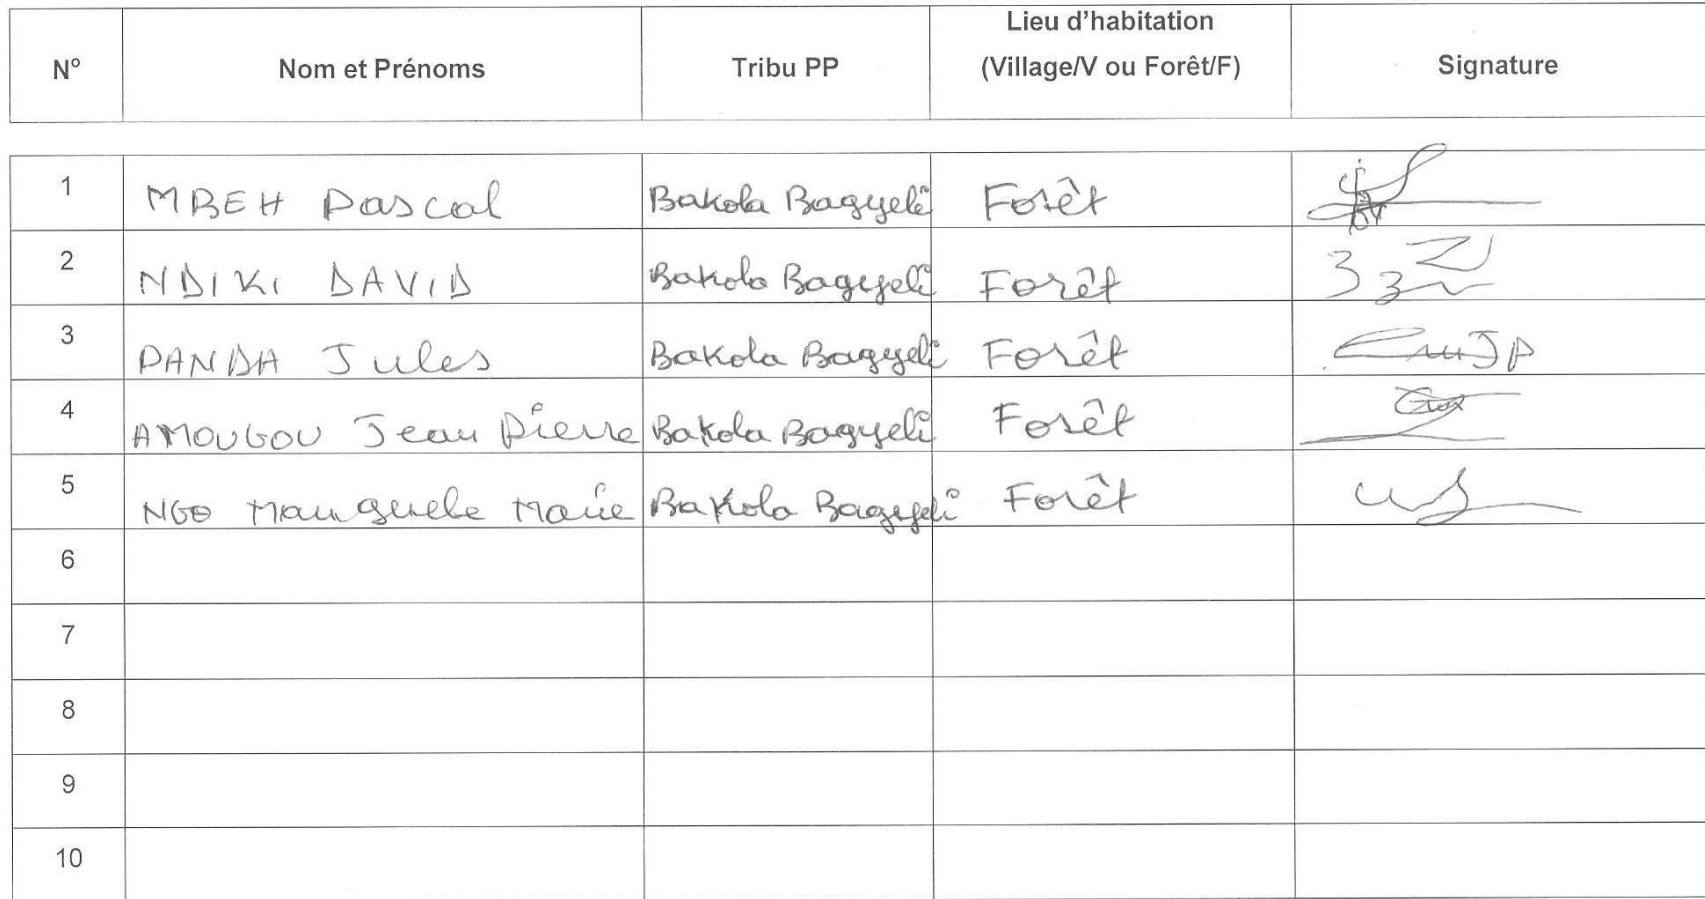 N° Nom et Prénoms Tribu PP Lieu d'habitation (Village/V ou Forêt/F) Signature
1 MBEH Pascal Bakola Bagyeli Forêt
2 NDIKI DAVID Bakola Bagyeli Forêt
3 PANDA Jules Bakola Bagyeli Forêt
4 AMOUGOU Jean Pierre Bakola Bagyeli Forêt
5 NGO Manguelle Marie Bakola Bagyeli Forêt
6
7
8
9
10